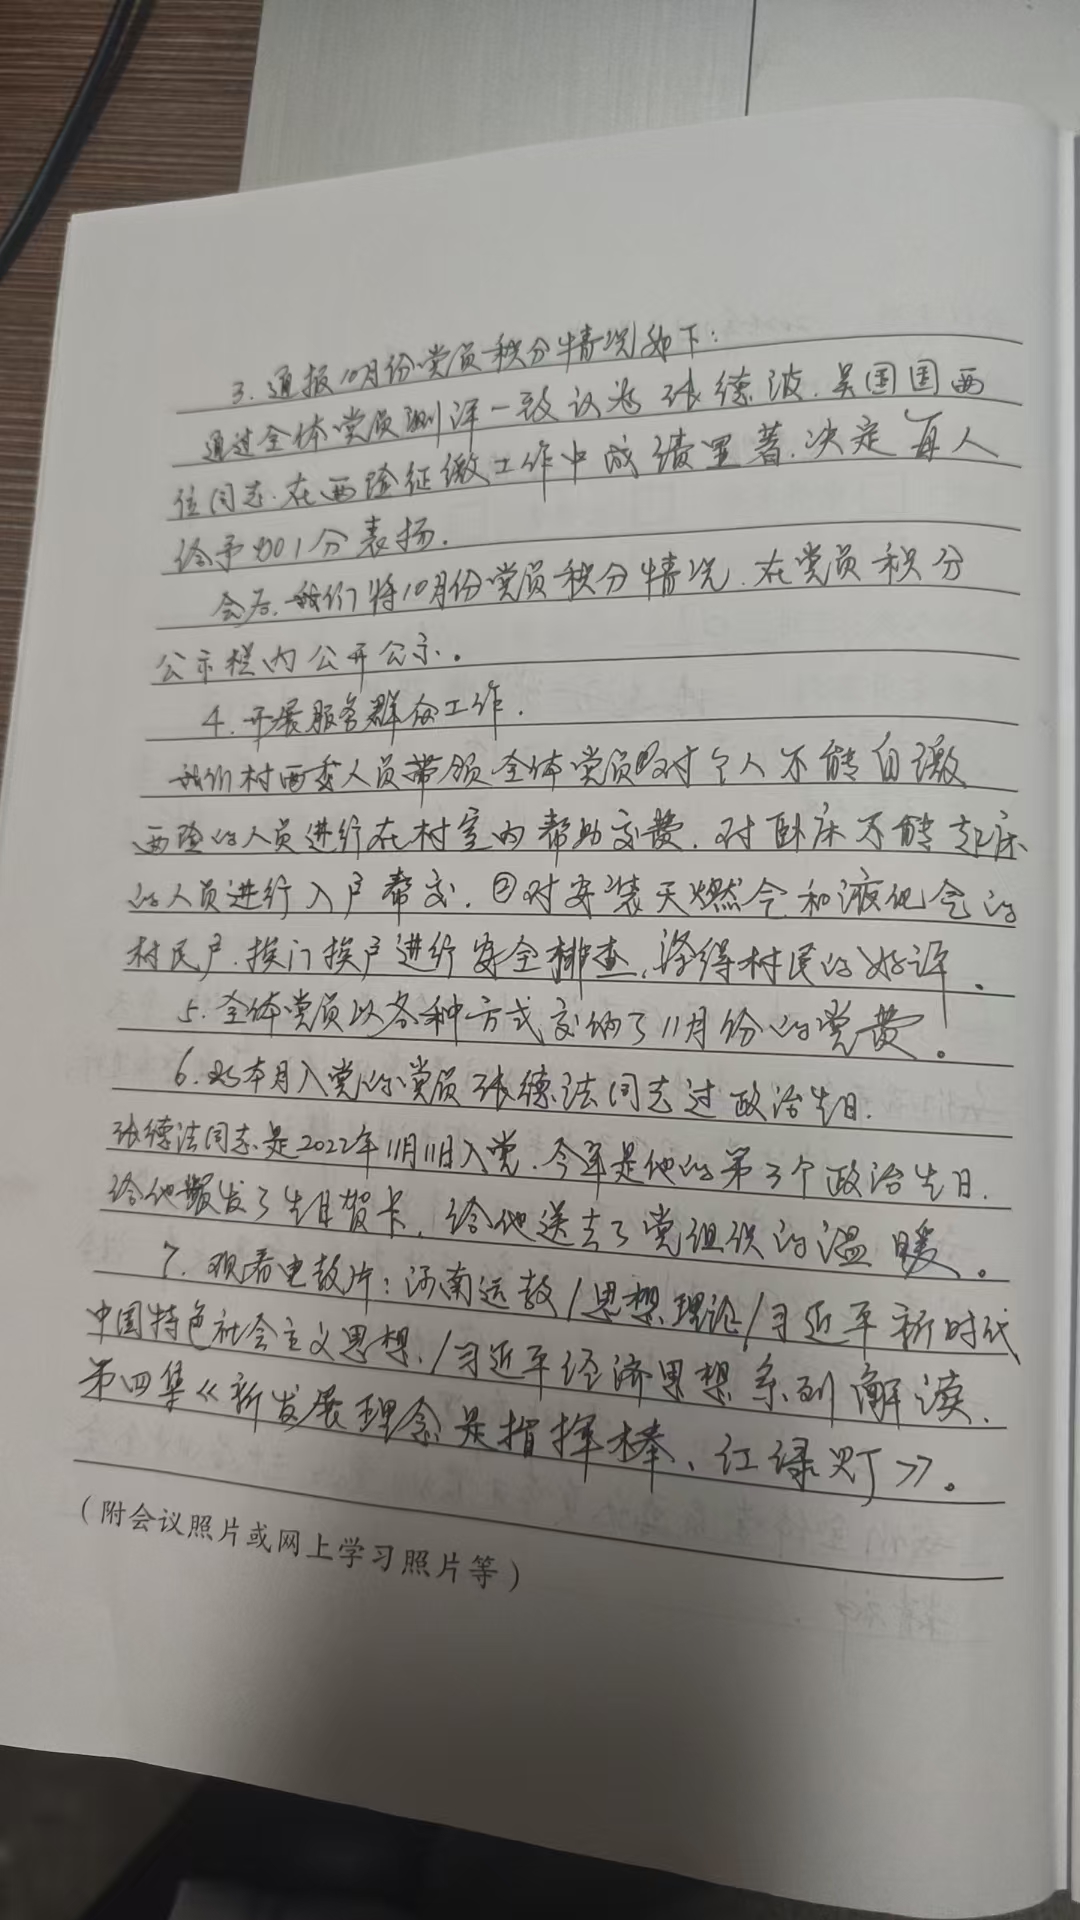 3.通报10月份党员积分情况如下:
通过全体党员测评一致认为张德波.吴国国两
位同志.在两险征缴工作中成绩显著.决定每人
给予加1分表扬.
会后.我们将10月份党员积分情况.在党员积分
公示栏内公开公示。
4.开展服务群众工作.
我们村两委人员带领全体党员①对个人不能自缴
两险的人员进行在村室内帮助交费.对卧床不能起床
的人员进行入户帮交.②对安装天燃气和液化气的
村民户.挨门挨户进行安全排查,得村民的好评.
5.全体党员以各种方式交纳了11月份的党费。
6.对本月入党的党员张德法同志过政治生日.
张德法同志是2022年11月11日入党.今年是他的第3个政治生日.
给他颁发了生日贺卡,给他送去了党组织的温暖。
7.观看电教片:河南远教/思想理论/习近平新时代
中国特色社会主义思想./习近平经济思想系列解读.
第四集《新发展理念是指挥棒、红绿灯》。
(附会议照片或网上学习照片等)